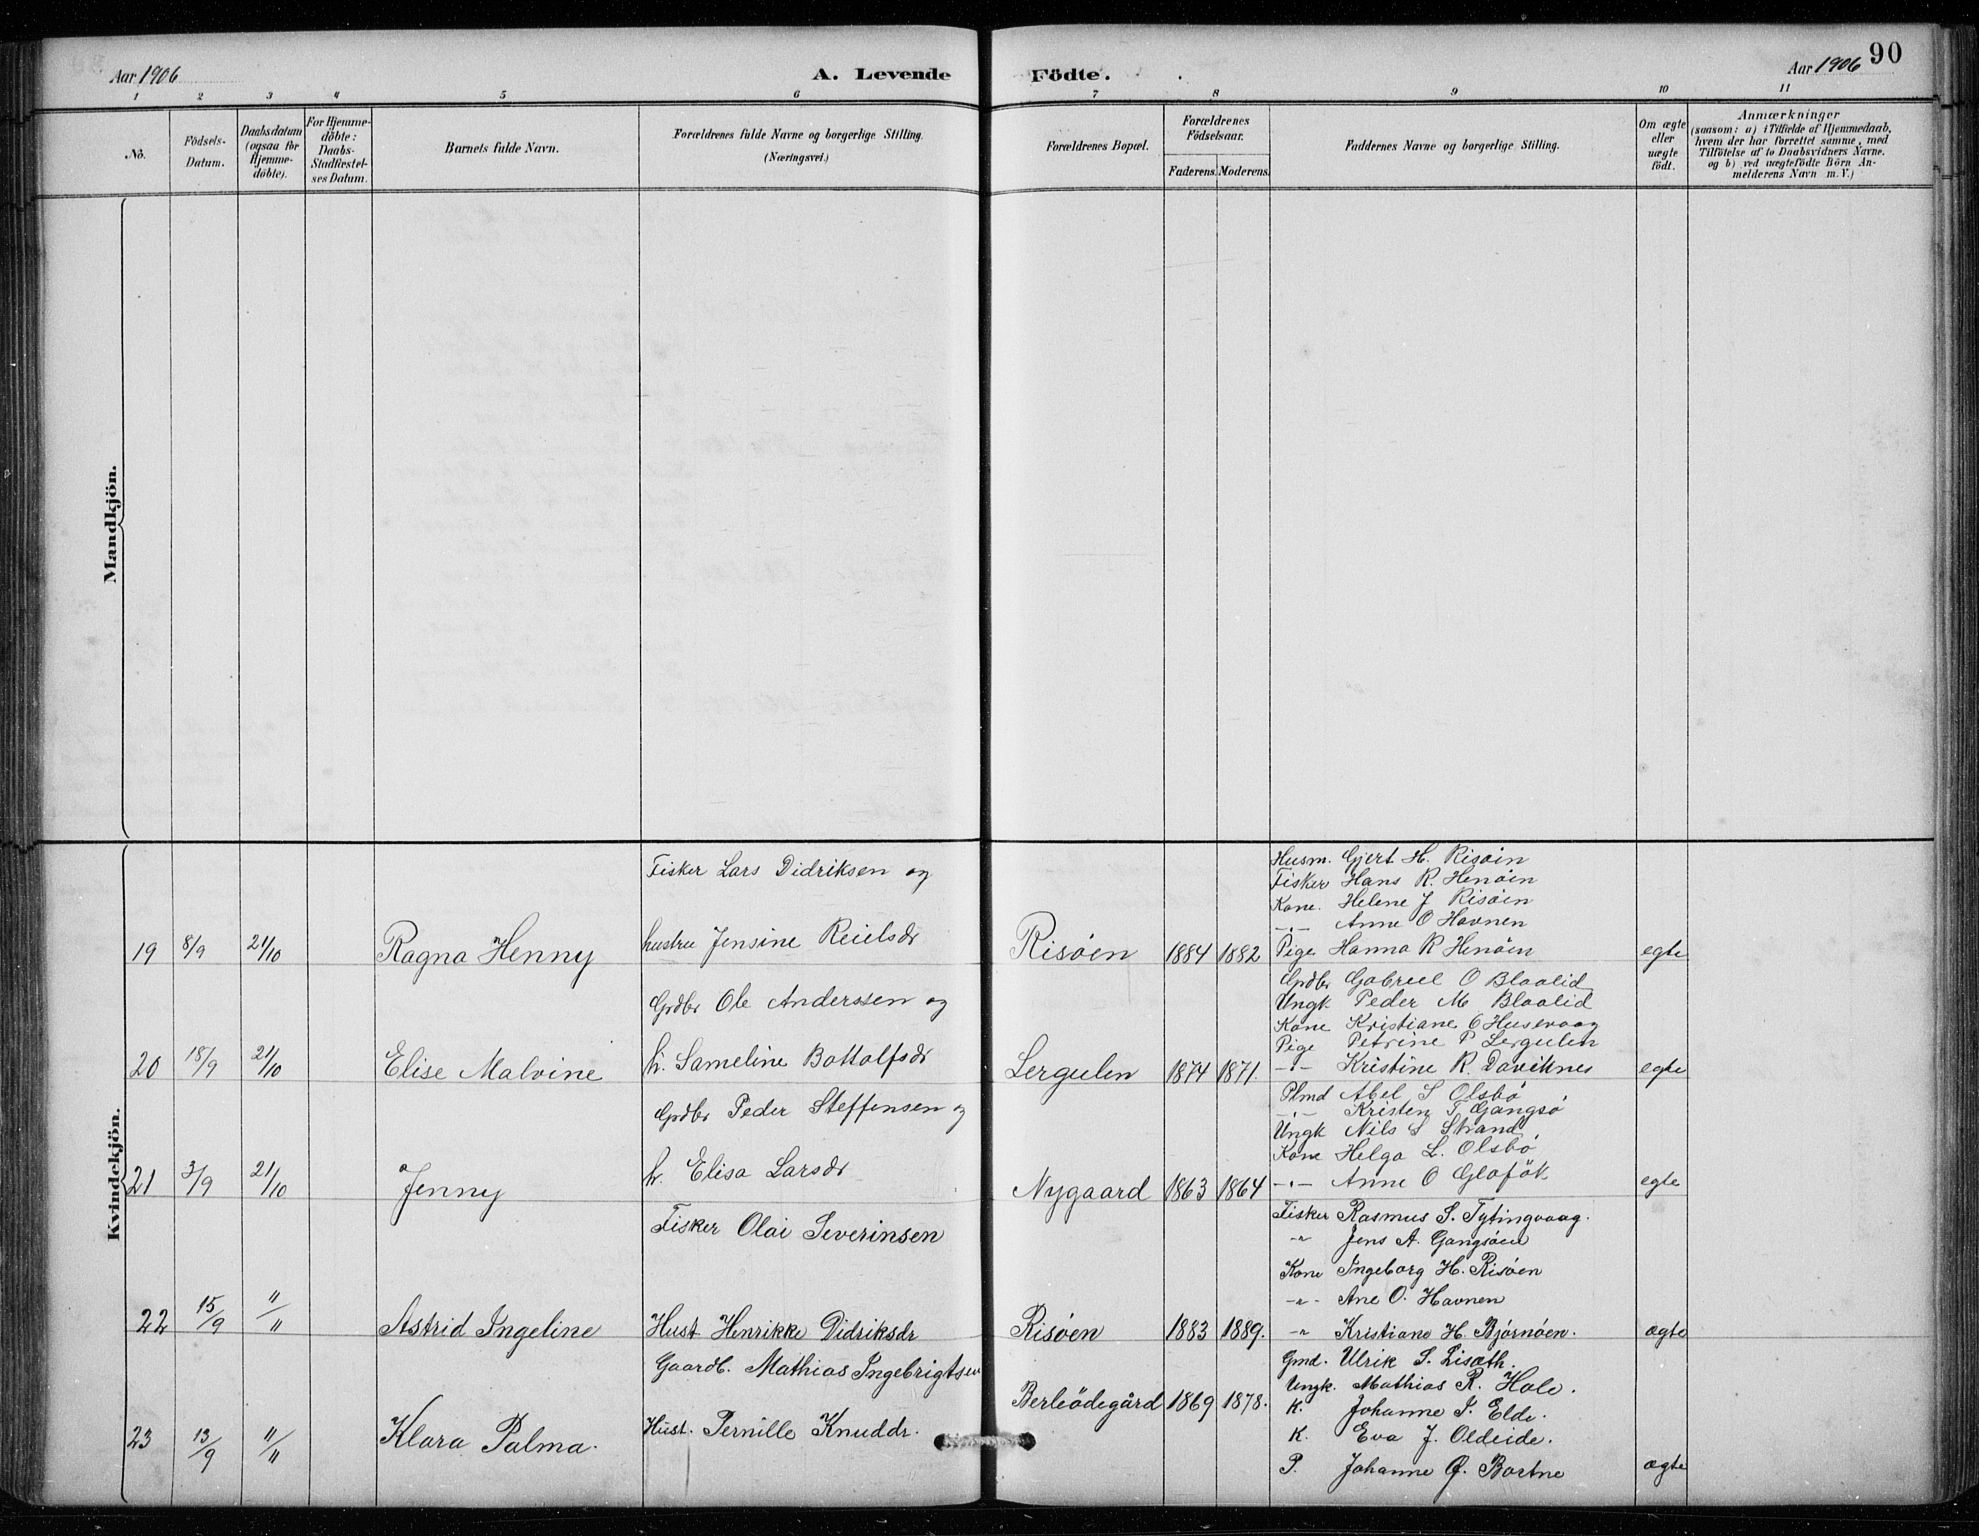 90
Aar 1906
A. Levende Födte.
Aar 1906
1 2 3 4 5 6 7 8 9 10 11
No.
Födsels-Datum.
Daabsdatum (ogsaa for Hjemme-döbte).
For Hjemme-döbte: Daabs-Stadfæstel-ses Datum.
Barnets fulde Navn.
Forældrenes fulde Navne og borgerlige Stilling.
(Næringsvei.)
Forældrenes Bopæl.
Forældrenes Födselsaar.
Faderens. Moderens.
Faddernes Navne og borgerlige Stilling.
Om ægte eller uægte födt.
Anmærkninger
(saasom: a) i Tilfælde af Hjemmedaab,
hvem der har forrettet samme, med
Tilföielse af to Daabsvidners Navne.
og b) ved uægtefödte Börn An-
melderens Navn m. V.)
Mandkjön.
Kvindekjön.
19 8/9 21/10 Ragna Henny
Fisker Lars Didriksen og
hustru Jensine Reielsdr
Risöen 1884 1882
Husm. Gjert H. Risöin
Fisker Hans R. Henöen
Kone. Helene J Risöin
-"- Anne O Havnen
Pige Hanna R Henöen
egte
20 18/9 21/10 Elise Malvine
Grdbr Ole Anderssen og
h. Sameline Bottolfsdr
Lergulen 1874 1871.
Grdbr Gabriel O Blaalid
Ungk Peder M Blaalid
Kone Kristiane Husevaag
Pige Petrine P Lergulen
-"- Kristine R. Daviknes
egte
21 3/9 21/10 Jenny
Grdbr Peder Steffensen og
h. Elisa Larsdr
Nygaard 1863 1864
Plmd Abel S Olsbö
-"- Kristen T Gangsö
Ungk Nils S Strand
Kone Helga L. Olsbö
-"- Anne O
egte
22 15/9 "/" Astrid Ingeline
Fisker Olai Severinsen
Hust Henrikke Didriksdr
Risöen 1883 1889.
Fisker Rasmus S. Tytingvaag.
-"- Jens A. Gangsöen
Kone Ingeborg H. Risöen
-"- Ane O. Havnen
-"- Kristiane H. Bjørnöen.
ægte
23 13/9 "/" Klara Palma.
Gaardb. Mathias Ingebrigtsen
Hust. Pernille Knuddr.
Berleödegård 1869 1878.
Gmd. Ulrik S. Lisæth.
Ungk. Mathias R. Hole.
K. Johanne S. Elde.
K. Eva J. Oldeide.
P. Johanne Ø. Bortne
ægte